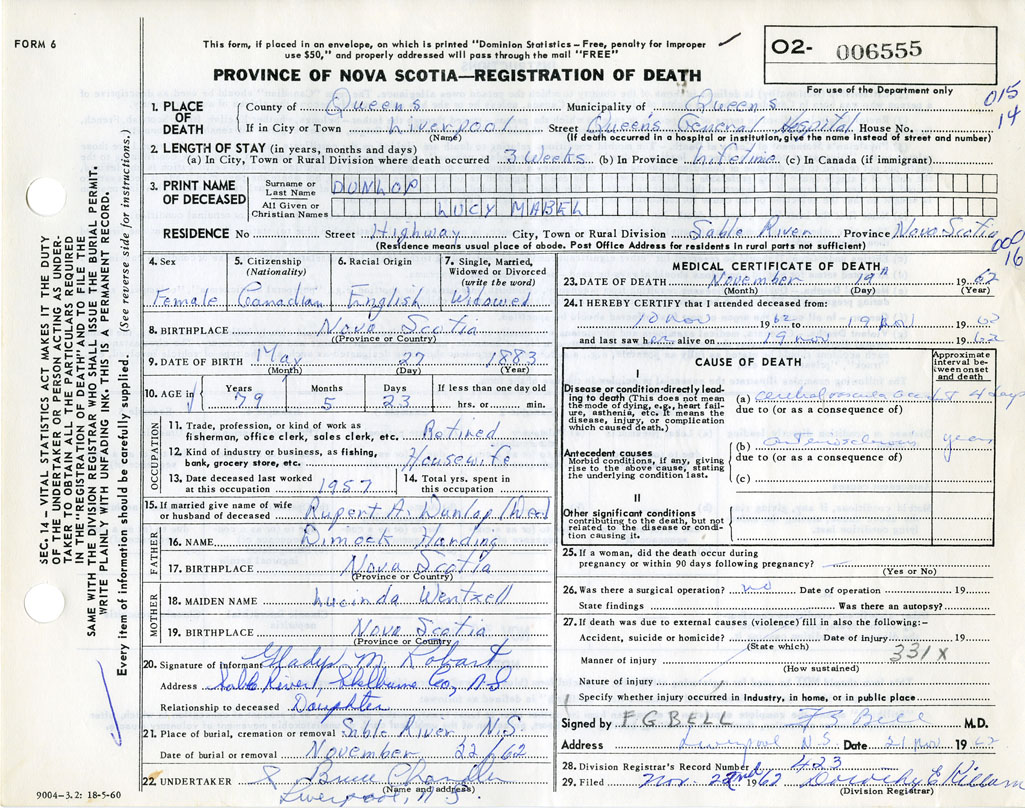 FORM 6
This form, if placed in an envelope, on which is printed "Dominion Statistics – Free, penalty for improper
use $50," and properly addressed will pass through the mail "FREE"
O2- 006555
PROVINCE OF NOVA SCOTIA—REGISTRATION OF DEATH
For use of the Department only
015
14
1. PLACE OF DEATH
County of Queens Municipality of Queens
If in City or Town Liverpool Street Queens General Hospital House No.
(Name) (If death occurred in a hospital or institution, give the name instead of street and number)
2. LENGTH OF STAY (in years, months and days)
(a) In City, Town or Rural Division where death occurred 3 Weeks (b) In Province Lifetime (c) In Canada (if immigrant)
3. PRINT NAME OF DECEASED
Surname or Last Name DUNLOP
All Given or Christian Names LUCY MABEL
RESIDENCE No Street Highway City, Town or Rural Division Sable River Province Nova Scotia
(Residence means usual place of abode. Post Office Address for residents in rural parts not sufficient)
000
16
4. Sex 5. Citizenship (Nationality) 6. Racial Origin 7. Single, Married, Widowed or Divorced (write the word)
Female Canadian English Widowed
8. BIRTHPLACE Nova Scotia
(Province or Country)
9. DATE OF BIRTH May 27 1883
(Month) (Day) (Year)
10. AGE in Years Months Days If less than one day old
79 5 23 hrs. or min.
OCCUPATION
11. Trade, profession, or kind of work as
fisherman, office clerk, sales clerk, etc. Retired
12. Kind of industry or business, as fishing,
bank, grocery store, etc. Housewife
13. Date deceased last worked
at this occupation 1957
14. Total yrs. spent in
this occupation
15. If married give name of wife
or husband of deceased Rupert A. Dunlop (Dec)
FATHER
16. NAME Dimock Harding
17. BIRTHPLACE Nova Scotia
(Province or Country)
MOTHER
18. MAIDEN NAME Lucinda Wentzell
19. BIRTHPLACE Nova Scotia
(Province or Country)
20. Signature of informant Gladys M.
Address Sable River, Shelburne Co, N.S
Relationship to deceased Daughter
21. Place of burial, cremation or removal Sable River, N.S.
Date of burial or removal November 22/62
22. UNDERTAKER Bruce Chandler
(Name and address)
Liverpool, N.S.
9004–3.2: 18-5-60
MEDICAL CERTIFICATE OF DEATH
23. DATE OF DEATH November 19th 1962
(Month) (Day) (Year)
24. I HEREBY CERTIFY that I attended deceased from:
10 Nov 1962 to 19 Nov 1962
and last saw her alive on 19 Nov 1962
CAUSE OF DEATH
Approximate interval between onset and death
I
Disease or condition directly leading to death (This does not mean
the mode of dying, e.g., heart failure, asthenia, etc. It means the
disease, injury, or complication
which caused death.)
(a) cerebrovascular accident 4 days
due to (or as a consequence of)
Antecedent causes
Morbid conditions, if any, giving
rise to the above cause, stating
the underlying condition last.
(b) arteriosclerosis years
due to (or as a consequence of)
(c)
II
Other significant conditions
contributing to the death, but not
related to the disease or condition causing it.
25. If a woman, did the death occur during
pregnancy or within 90 days following pregnancy?
(Yes or No)
26. Was there a surgical operation? no Date of operation 19
State findings Was there an autopsy?
27. If death was due to external causes (violence) fill in also the following:-
Accident, suicide or homicide? Date of injury 19
(State which)
331X
Manner of injury
(How sustained)
Nature of injury
Specify whether injury occurred in industry, in home, or in public place
Signed by F.G. BELL F G Bell M.D.
Address Liverpool N.S. Date 21 Nov 1962
28. Division Registrar's Record Number 423
29. Filed Nov. 22nd 1962 Dorothy E Killam
(Division Registrar)
SEC. 14 – VITAL STATISTICS ACT MAKES IT THE DUTY
OF THE UNDERTAKER OR PERSON ACTING AS UNDERTAKER TO OBTAIN ALL THE PARTICULARS REQUIRED
IN THE "REGISTRATION OF DEATH" AND TO FILE THE
SAME WITH THE DIVISION REGISTRAR WHO SHALL ISSUE THE BURIAL PERMIT.
WRITE PLAINLY WITH UNFADING INK. THIS IS A PERMANENT RECORD.
Every item of information should be carefully supplied. (See reverse side for instructions.)